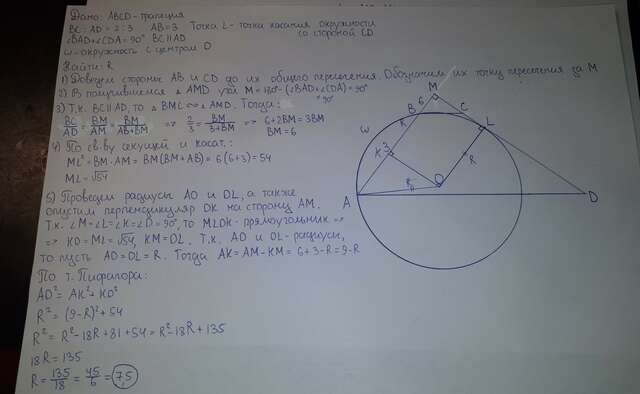 Дано: ABCD - трапеция
BC : AD = 2 : 3 AB = 3 Точка L - точка касания окружности
∠BAD + ∠CDA = 90° BC || AD со стороной CD
ω - окружность с центром O
Найти: R
1) Доведём стороны AB и CD до их общего пересечения. Обозначим их точку пересечения за M
2) В получившемся △AMD угол M = 180° - (∠BAD + ∠CDA) = 90°
= 90°
3) Т.к. BC || AD, то △BMC ∾ △AMD. Тогда:
BC/AD = BM/AM = BM/AB+BM => 2/3 = BM/3+BM => 6+2BM = 3BM
BM = 6
4) По св.ву секущей и касат.:
ML² = BM · AM = BM(BM+AB) = 6(6+3) = 54
ML = √54
5) Проведём радиусы AO и OL, а также
опустим перпендикуляр OK на сторону AM.
Т.к. ∠M = ∠L = ∠K = ∠O = 90°, то MLOK - прямоугольник =>
=> KO = ML = √54, KM = OL. Т.к. AO и OL - радиусы,
то пусть AO = OL = R. Тогда AK = AM - KM = 6+3-R = 9-R
По т. Пифагора:
AO² = AK² + KO²
R² = (9-R)² + 54
R² = R² - 18R + 81 + 54 = R² - 18R + 135
18R = 135
R = 135/18 = 45/6 = 7,5
M
6
B
C
ω
R
L
K
3
R
R
O
A
D